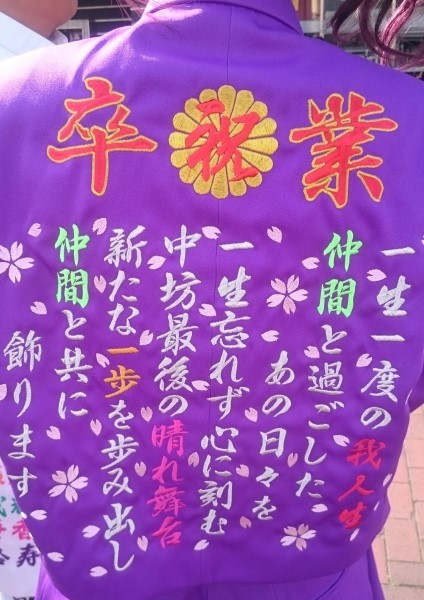 卒祝業
一生一度の我人生
仲間と過ごした
あの日々を
一生忘れず心に刻む
中坊最後の晴れ舞台
新たな一歩を歩み出し
仲間と共に
飾ります